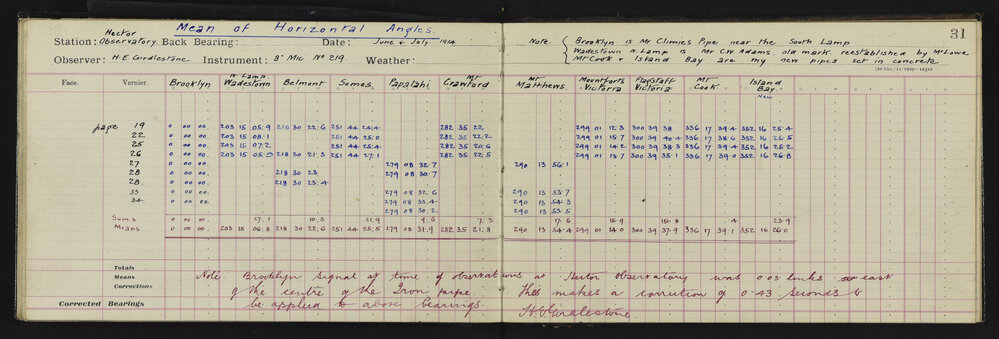 Mean of Horizontal Angles.
31
Station: Hector Observatory. Back Bearing: Date: June & July 1914
Observer: H.E. Girdlestone. Instrument: 8" Mic No 219. Weather:
Note. Brooklyn is Mr Climies Pipe near the South Lamp
Wadestown N. Lamp is Mr C.W. Adams. old mark reestablished by Mr Lowe
Mt Cook & Island Bay are my new pipes set in concrete
Face. Vernier. Brooklyn N. Lamp Wadestown Belmont Somes. Papatahi Mt Crawford Mt Matthews. Mountforts Victoria Flagstaff Victoria Mt Cook Island Bay. New
page 19 0 00 00. 203 15 05.9 218 30 22.6 251 44 24.4 282 35 22. 299 01 12.3 300 39 38 336 17 39.4 352 16 25.4
22 0 00 00. 203 15 08.1 251 44 25.0 282 35 22.2 299 01 15.7 300 39 40.4 336 17 38.6 352 16 26.5
25 0 00 00. 203 15 07.2 251 44 25.4 282 35 20.6 299 01 14.2 300 39 38.3 336 17 39.4 352 16 25.2
26 0 00 00. 203 15 05.9 218 30 21.3 251 44 27.1 282 35 22.5 299 01 13.7 300 39 35.1 336 17 39.0 352 16 26.8
27 0 00 00. 279 08 32.7 290 13 56.1
28 0 00 00. 218 30 23. 279 08 30.7
28. 0 00 00. 218 30 23.4
33 0 00 00. 279 08 32.6 290 13 53.7
34. 0 00 00. 279 08 33.4 290 13 54.3
279 08 30.2 290 13 53.5
Sums 0 00 00. 27.1 10.3 21.9 9.6 7.3 7.6 15.9 4 23.9
Means 0 00 00. 203 15 06.8 218 30 22.6 251 44 25.5 279 08 31.9 282 35 21.8 290 13 54.4 299 01 14.0 300 39 37.9 336 17 39.1 352 16 26.0
Totals
Means
Corrections
Corrected Bearings
Note. Brooklyn signal at time of observations at Hector Observatory was 0.03 links east
of the centre of the Iron pipe. This makes a correction of 0.43 seconds to
be applied to above bearings.
H.E. Girdlestone.